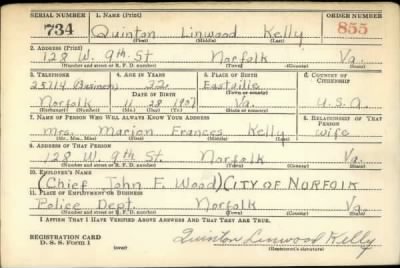 SERIAL NUMBER 1. NAME (Print) ORDER NUMBER
734 Quinton Linwood Kelly 855
(First) (Middle) (Last)
2. ADDRESS (Print)
128 W. 9th St Norfolk Va.
(Number and street or R. F. D. number) (Town) (County) (State)
3. TELEPHONE 4. AGE IN YEARS 5. PLACE OF BIRTH 6. COUNTRY OF CITIZENSHIP
25714 Business 32
DATE OF BIRTH (Town or county)
Norfolk 11 28 1907 Va. U.S.A.
(Exchange) (Number) (Mo.) (Day) (Yr.) (State or country)
7. NAME OF PERSON WHO WILL ALWAYS KNOW YOUR ADDRESS 8. RELATIONSHIP OF THAT PERSON
Mrs. Marian Frances Kelly wife
(Mr., Mrs., Miss) (First) (Middle) (Last)
9. ADDRESS OF THAT PERSON
128 W. 9th St. Norfolk Va.
(Number and street or R. F. D. number) (Town) (County) (State)
10. EMPLOYER'S NAME
(Chief John F. Wood) CITY OF NORFOLK
11. PLACE OF EMPLOYMENT OR BUSINESS
Police Dept. Norfolk Va.
(Number and street or R. F. D. number) (Town) (County) (State)
I AFFIRM THAT I HAVE VERIFIED ABOVE ANSWERS AND THAT THEY ARE TRUE.
REGISTRATION CARD
D. S. S. Form 1 (over) Quinton Linwood Kelly
(Registrant's signature)